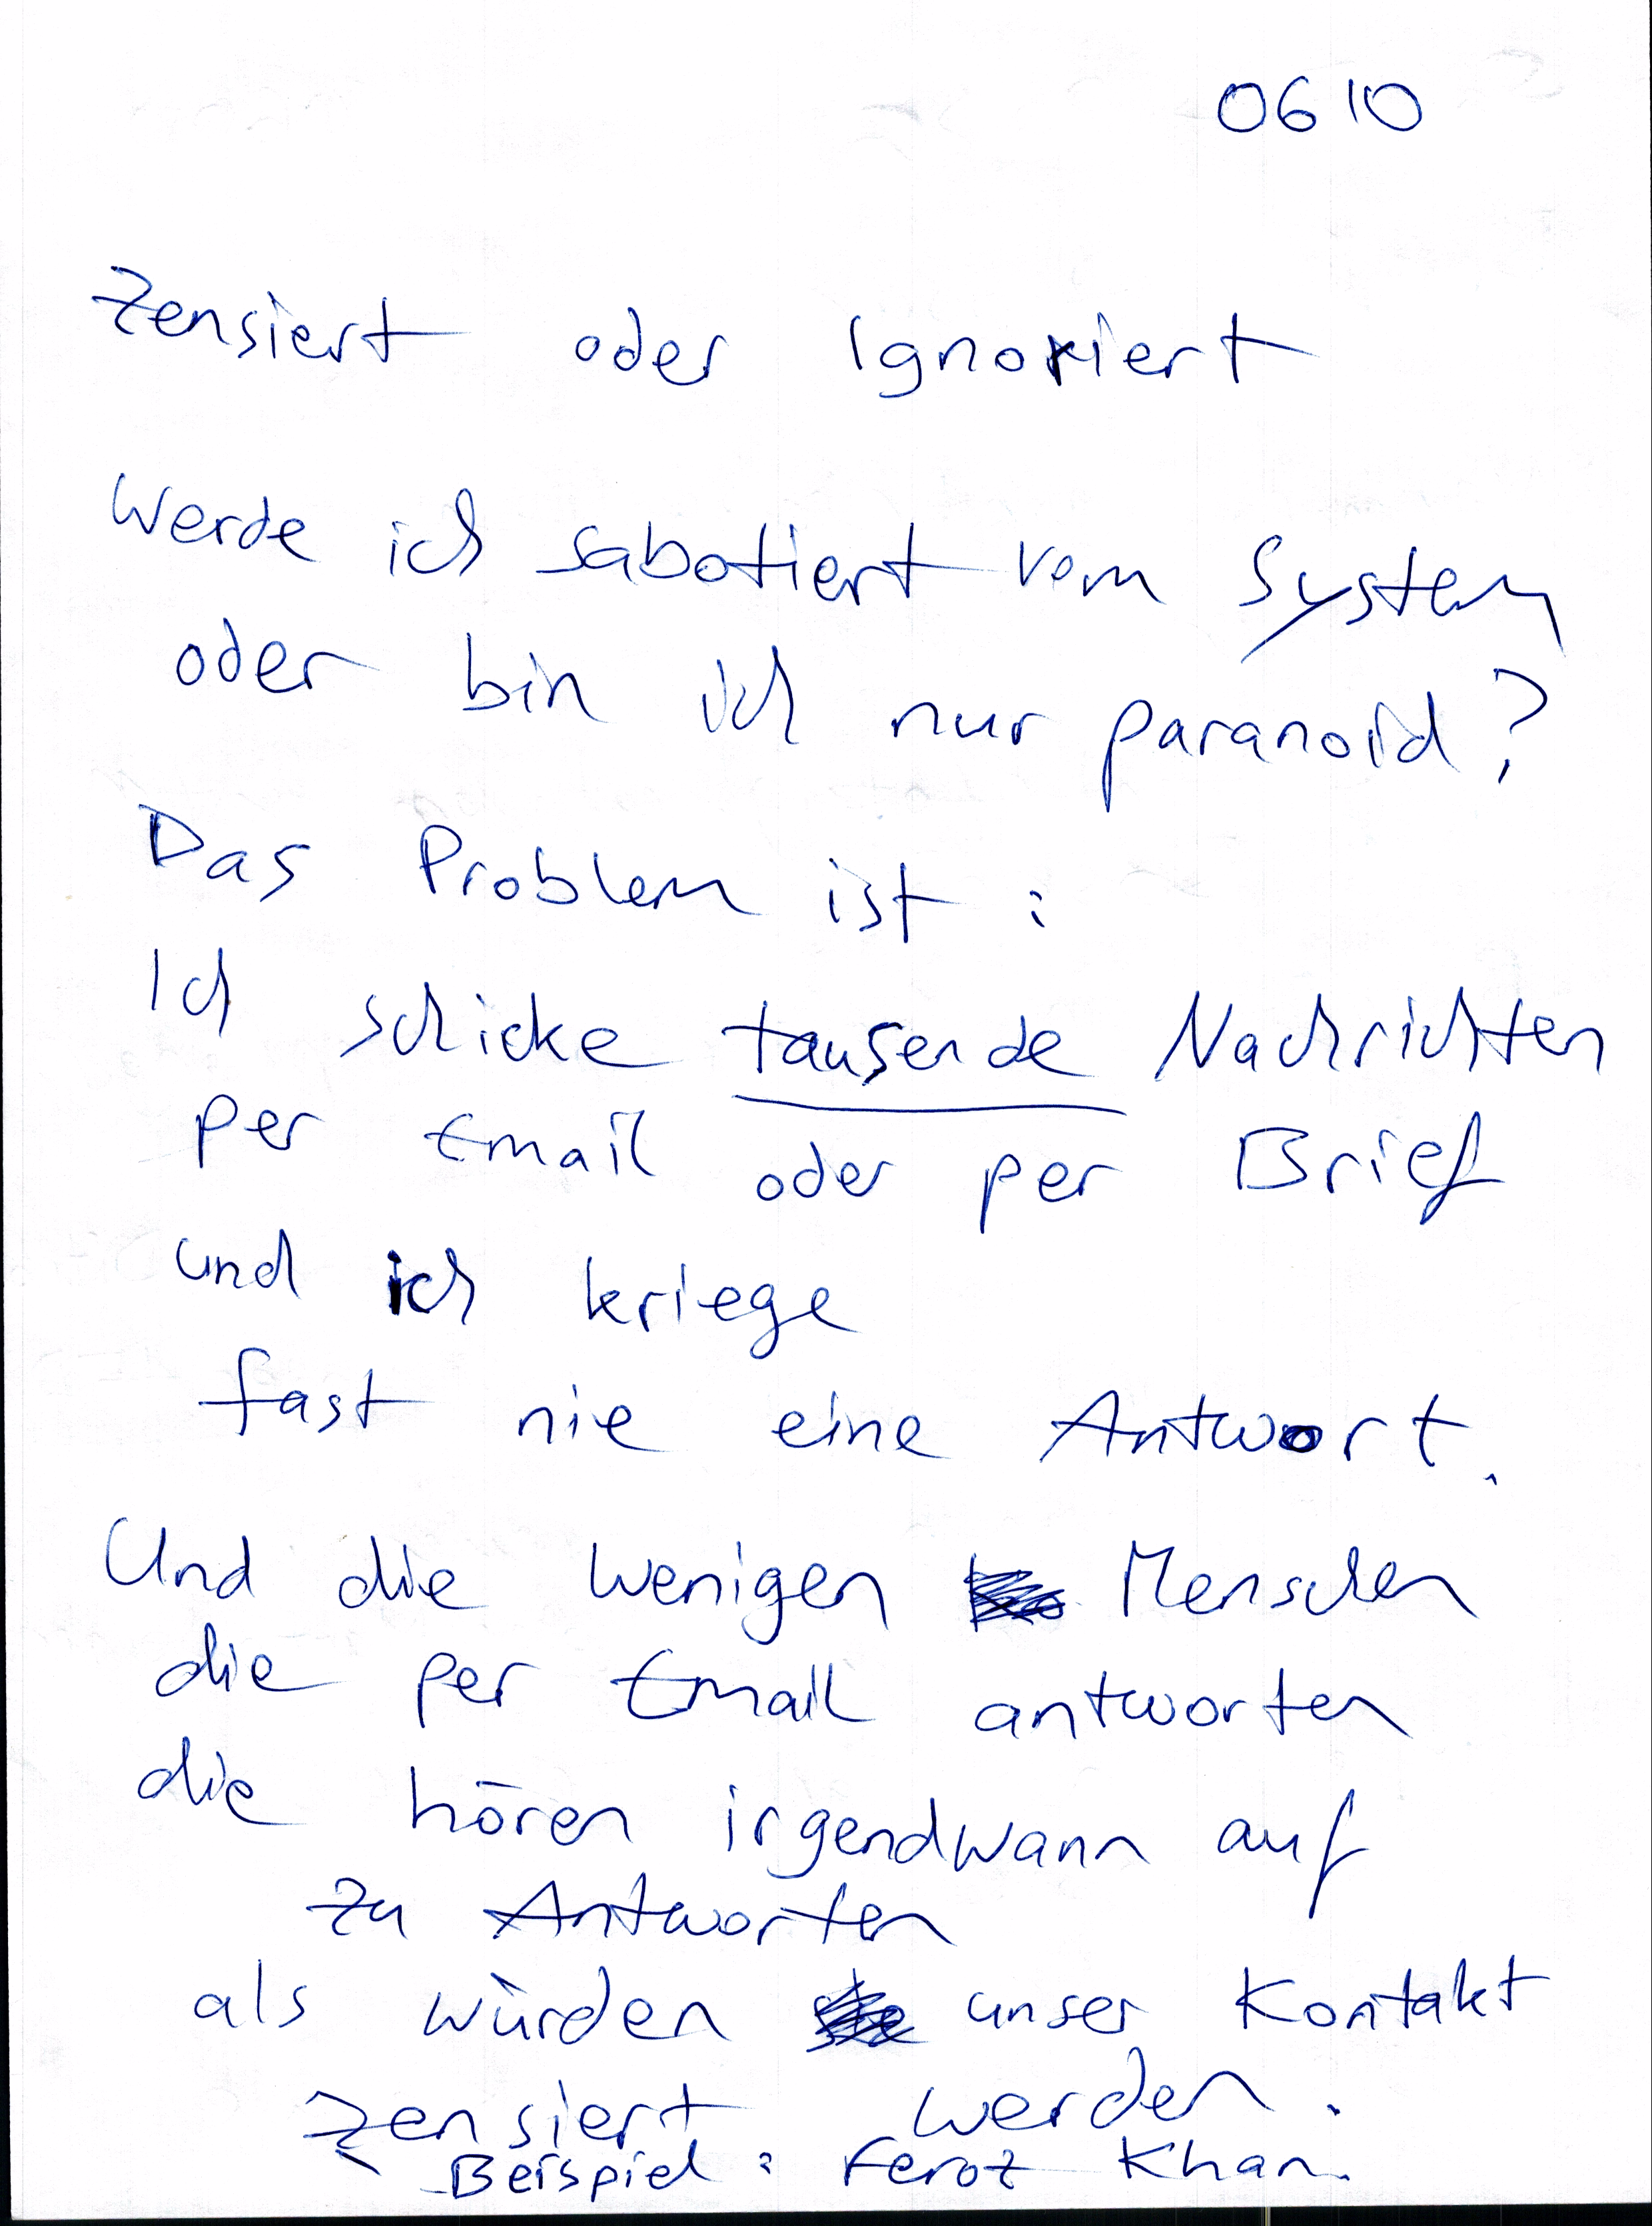 0610
Zensiert oder Ignoriert
Werde ich sabotiert vom System
oder bin ich nur paranoid?
Das Problem ist:
Ich schicke tausende Nachrichten
per Email oder per Brief
und ich kriege
fast nie eine Antwort.
Und die wenigen Menschen
die per Email antworten
die hören irgendwann auf
zu Antworten
als würden unser Kontakt
zensiert werden.
Beispiel: Feroz Khan.